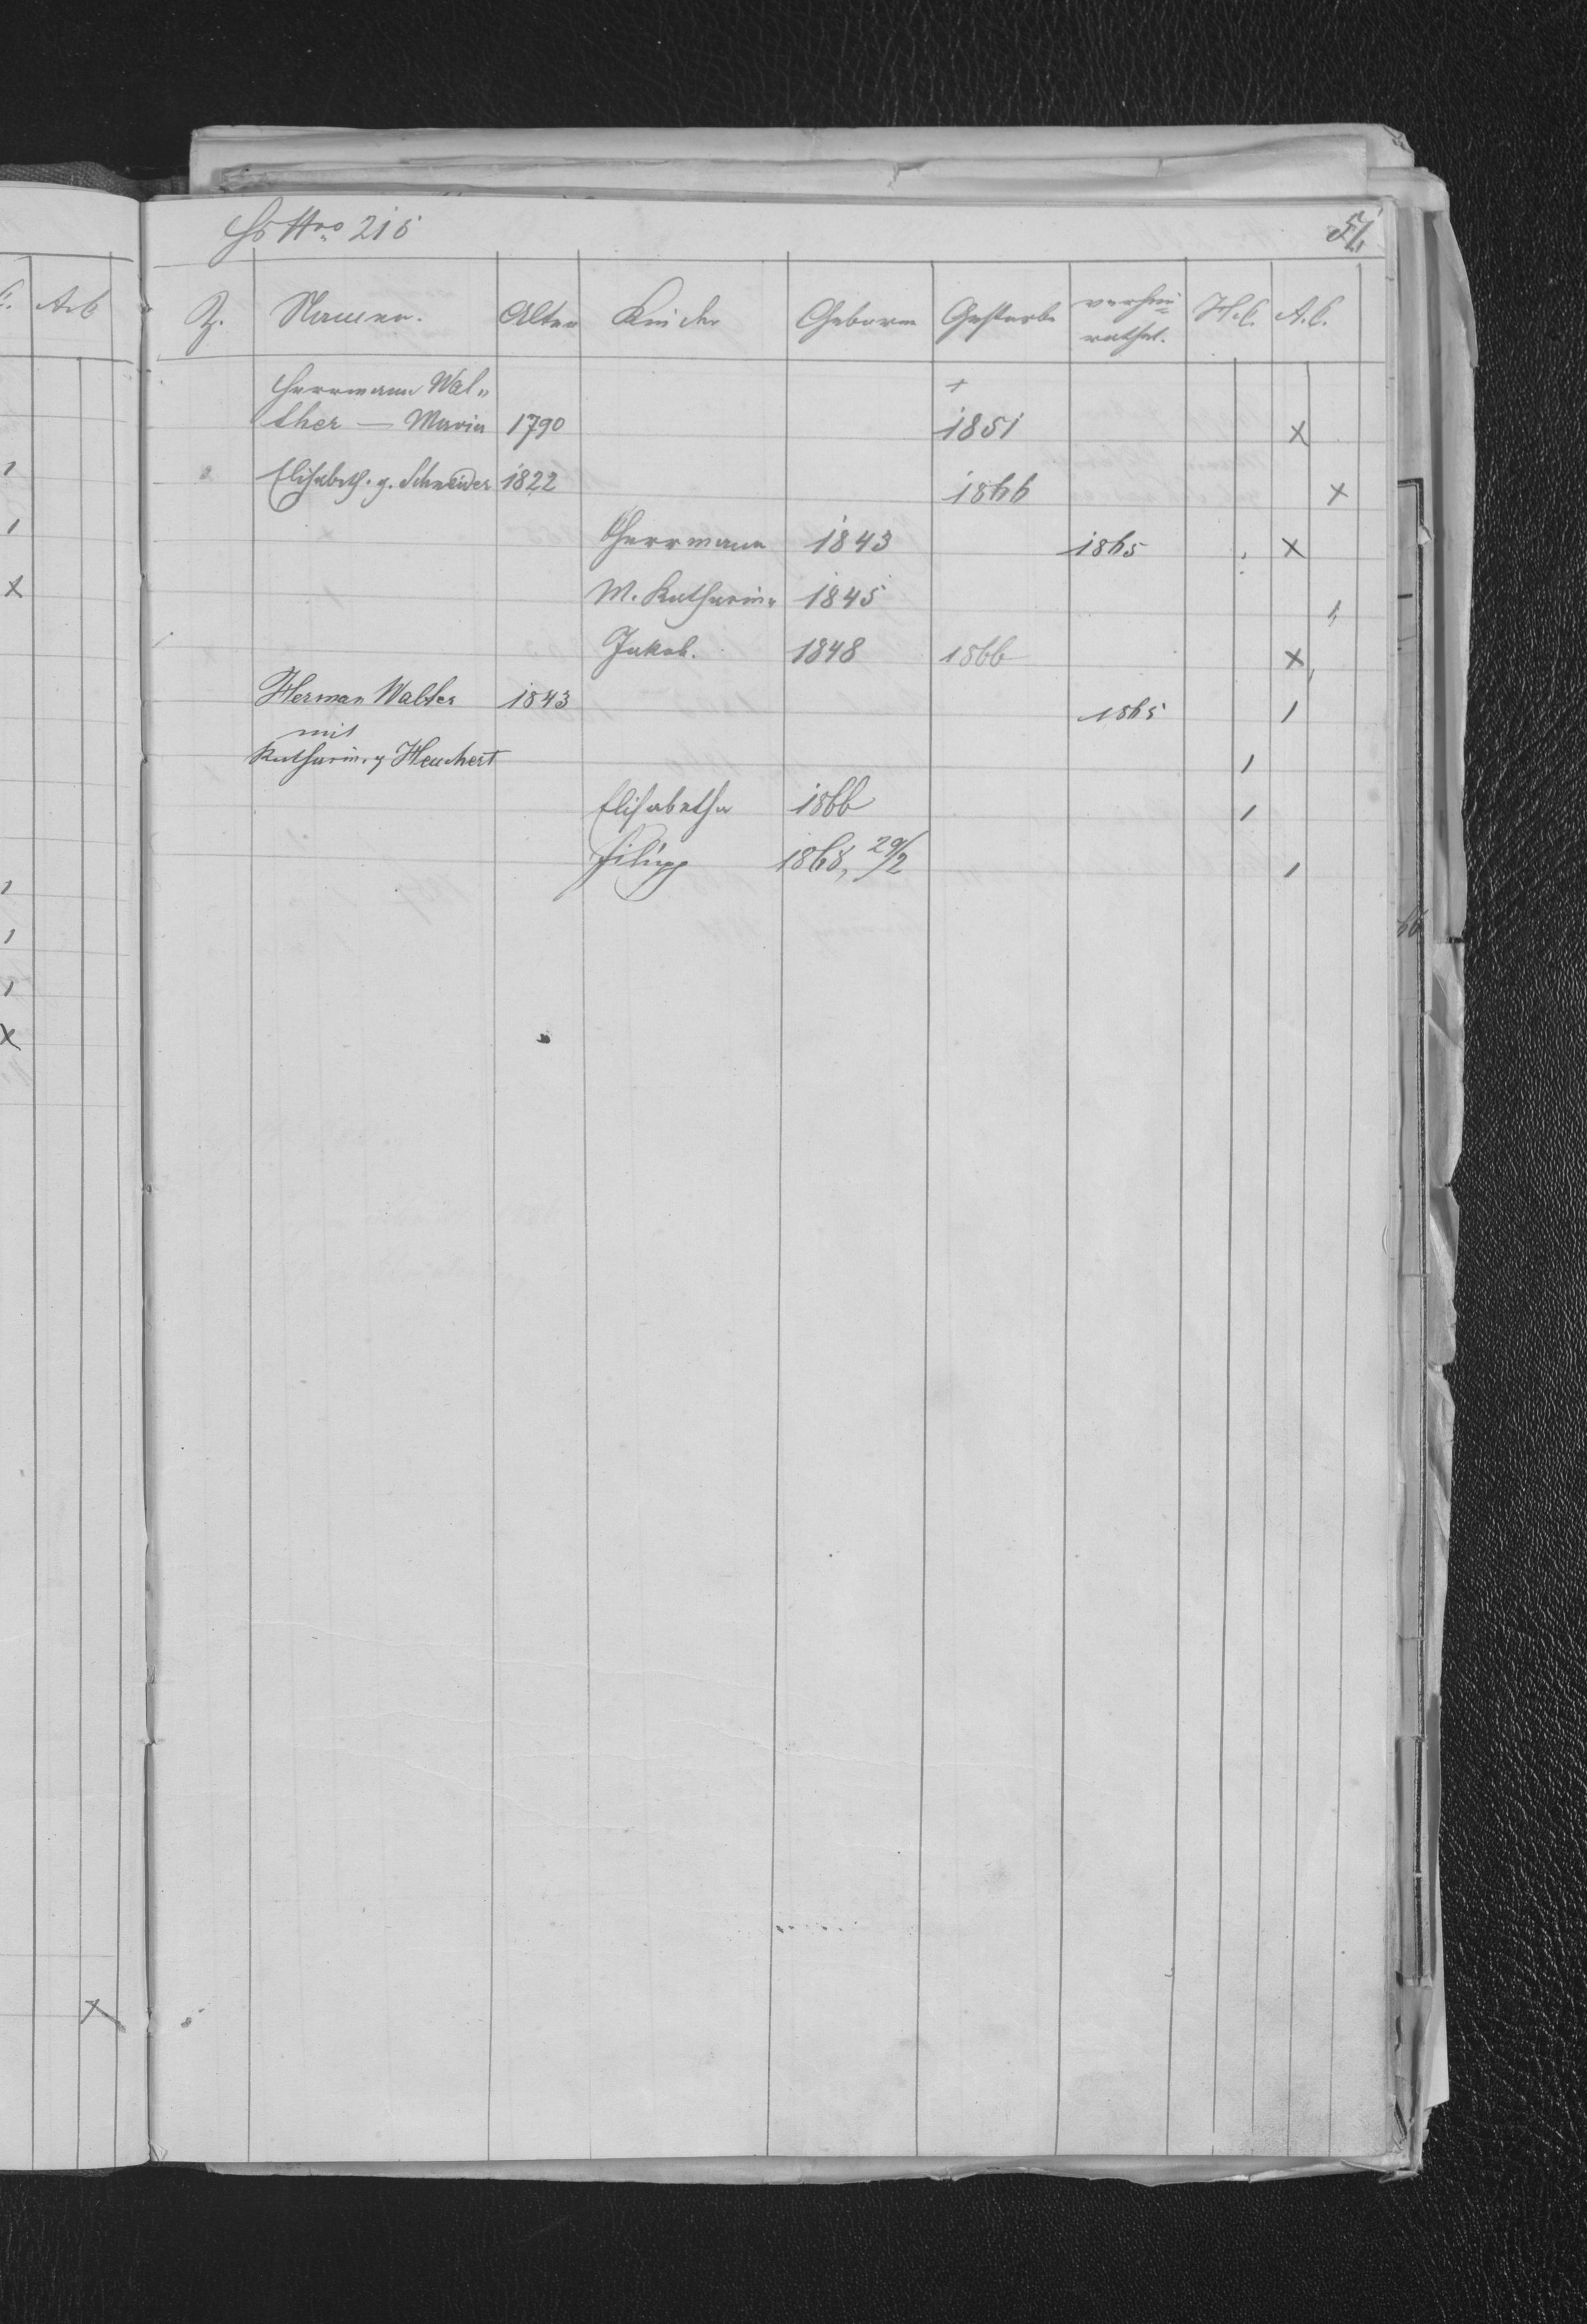 Hs Nro 215
51.
Z. Namen. Alter Kinder Geboren Gestorbe verhei= rathet. H.C. A.C.
Herrmann Wal= +
ther — Maria 1790 1851 x
Elisabeth. g. Schneider 1822 1866 x
Herrmann 1843 1865 x
M. Katharina 1845 1
Jakob. 1848 1866 x
Herman Walter 1843 1865 1
mit
Katharina g Heuchert 1
Elisabetha 1866 1
Filipp 1868, 29/2 1